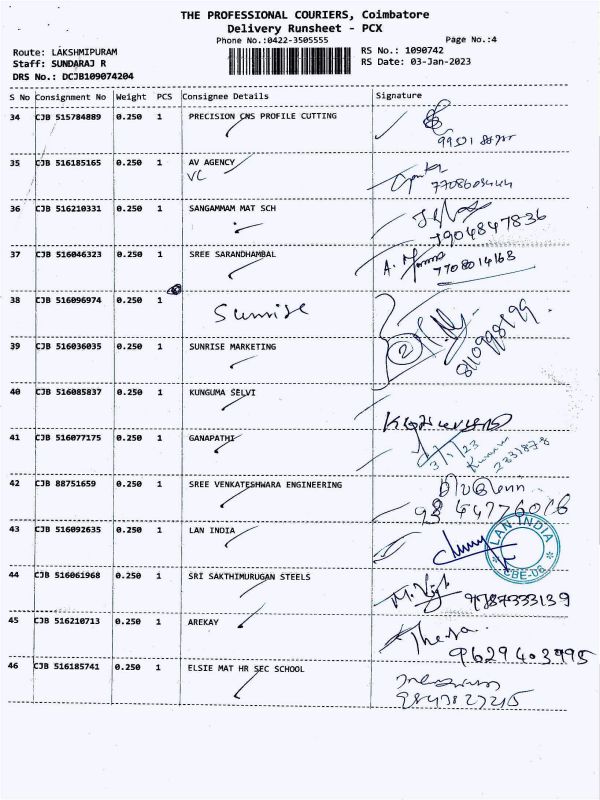 THE PROFESSIONAL COURIERS, Coimbatore
Delivery Runsheet - PCX
Phone No.:0422-3505555 Page No.:4
Route: LAKSHMIPURAM RS No.: 1090742
Staff: SUNDARAJ R RS Date: 03-Jan-2023
DRS No.: DCJB109074204
S No Consignment No Weight PCS Consignee Details Signature
34 CJB 515784889 0.250 1 PRECISION CNS PROFILE CUTTING
35 CJB 516185165 0.250 1 AV AGENCY
VC
36 CJB 516210331 0.250 1 SANGAMMAM MAT SCH
7904847836
37 CJB 516046323 0.250 1 SREE SARANDHAMBAL
7708014168
38 CJB 516096974 0.250 1 Sunrise
39 CJB 516036035 0.250 1 SUNRISE MARKETING 2
40 CJB 516085837 0.250 1 KUNGUMA SELVI
41 CJB 516077175 0.250 1 GANAPATHI
3/1/23
42 CJB 88751659 0.250 1 SREE VENKATESHWARA ENGINEERING
43 CJB 516092635 0.250 1 LAN INDIA
LAN INDIA
CBE-06
44 CJB 516061968 0.250 1 SRI SAKTHIMURUGAN STEELS
9787333139
45 CJB 516210713 0.250 1 AREKAY
9629403995
46 CJB 516185741 0.250 1 ELSIE MAT HR SEC SCHOOL